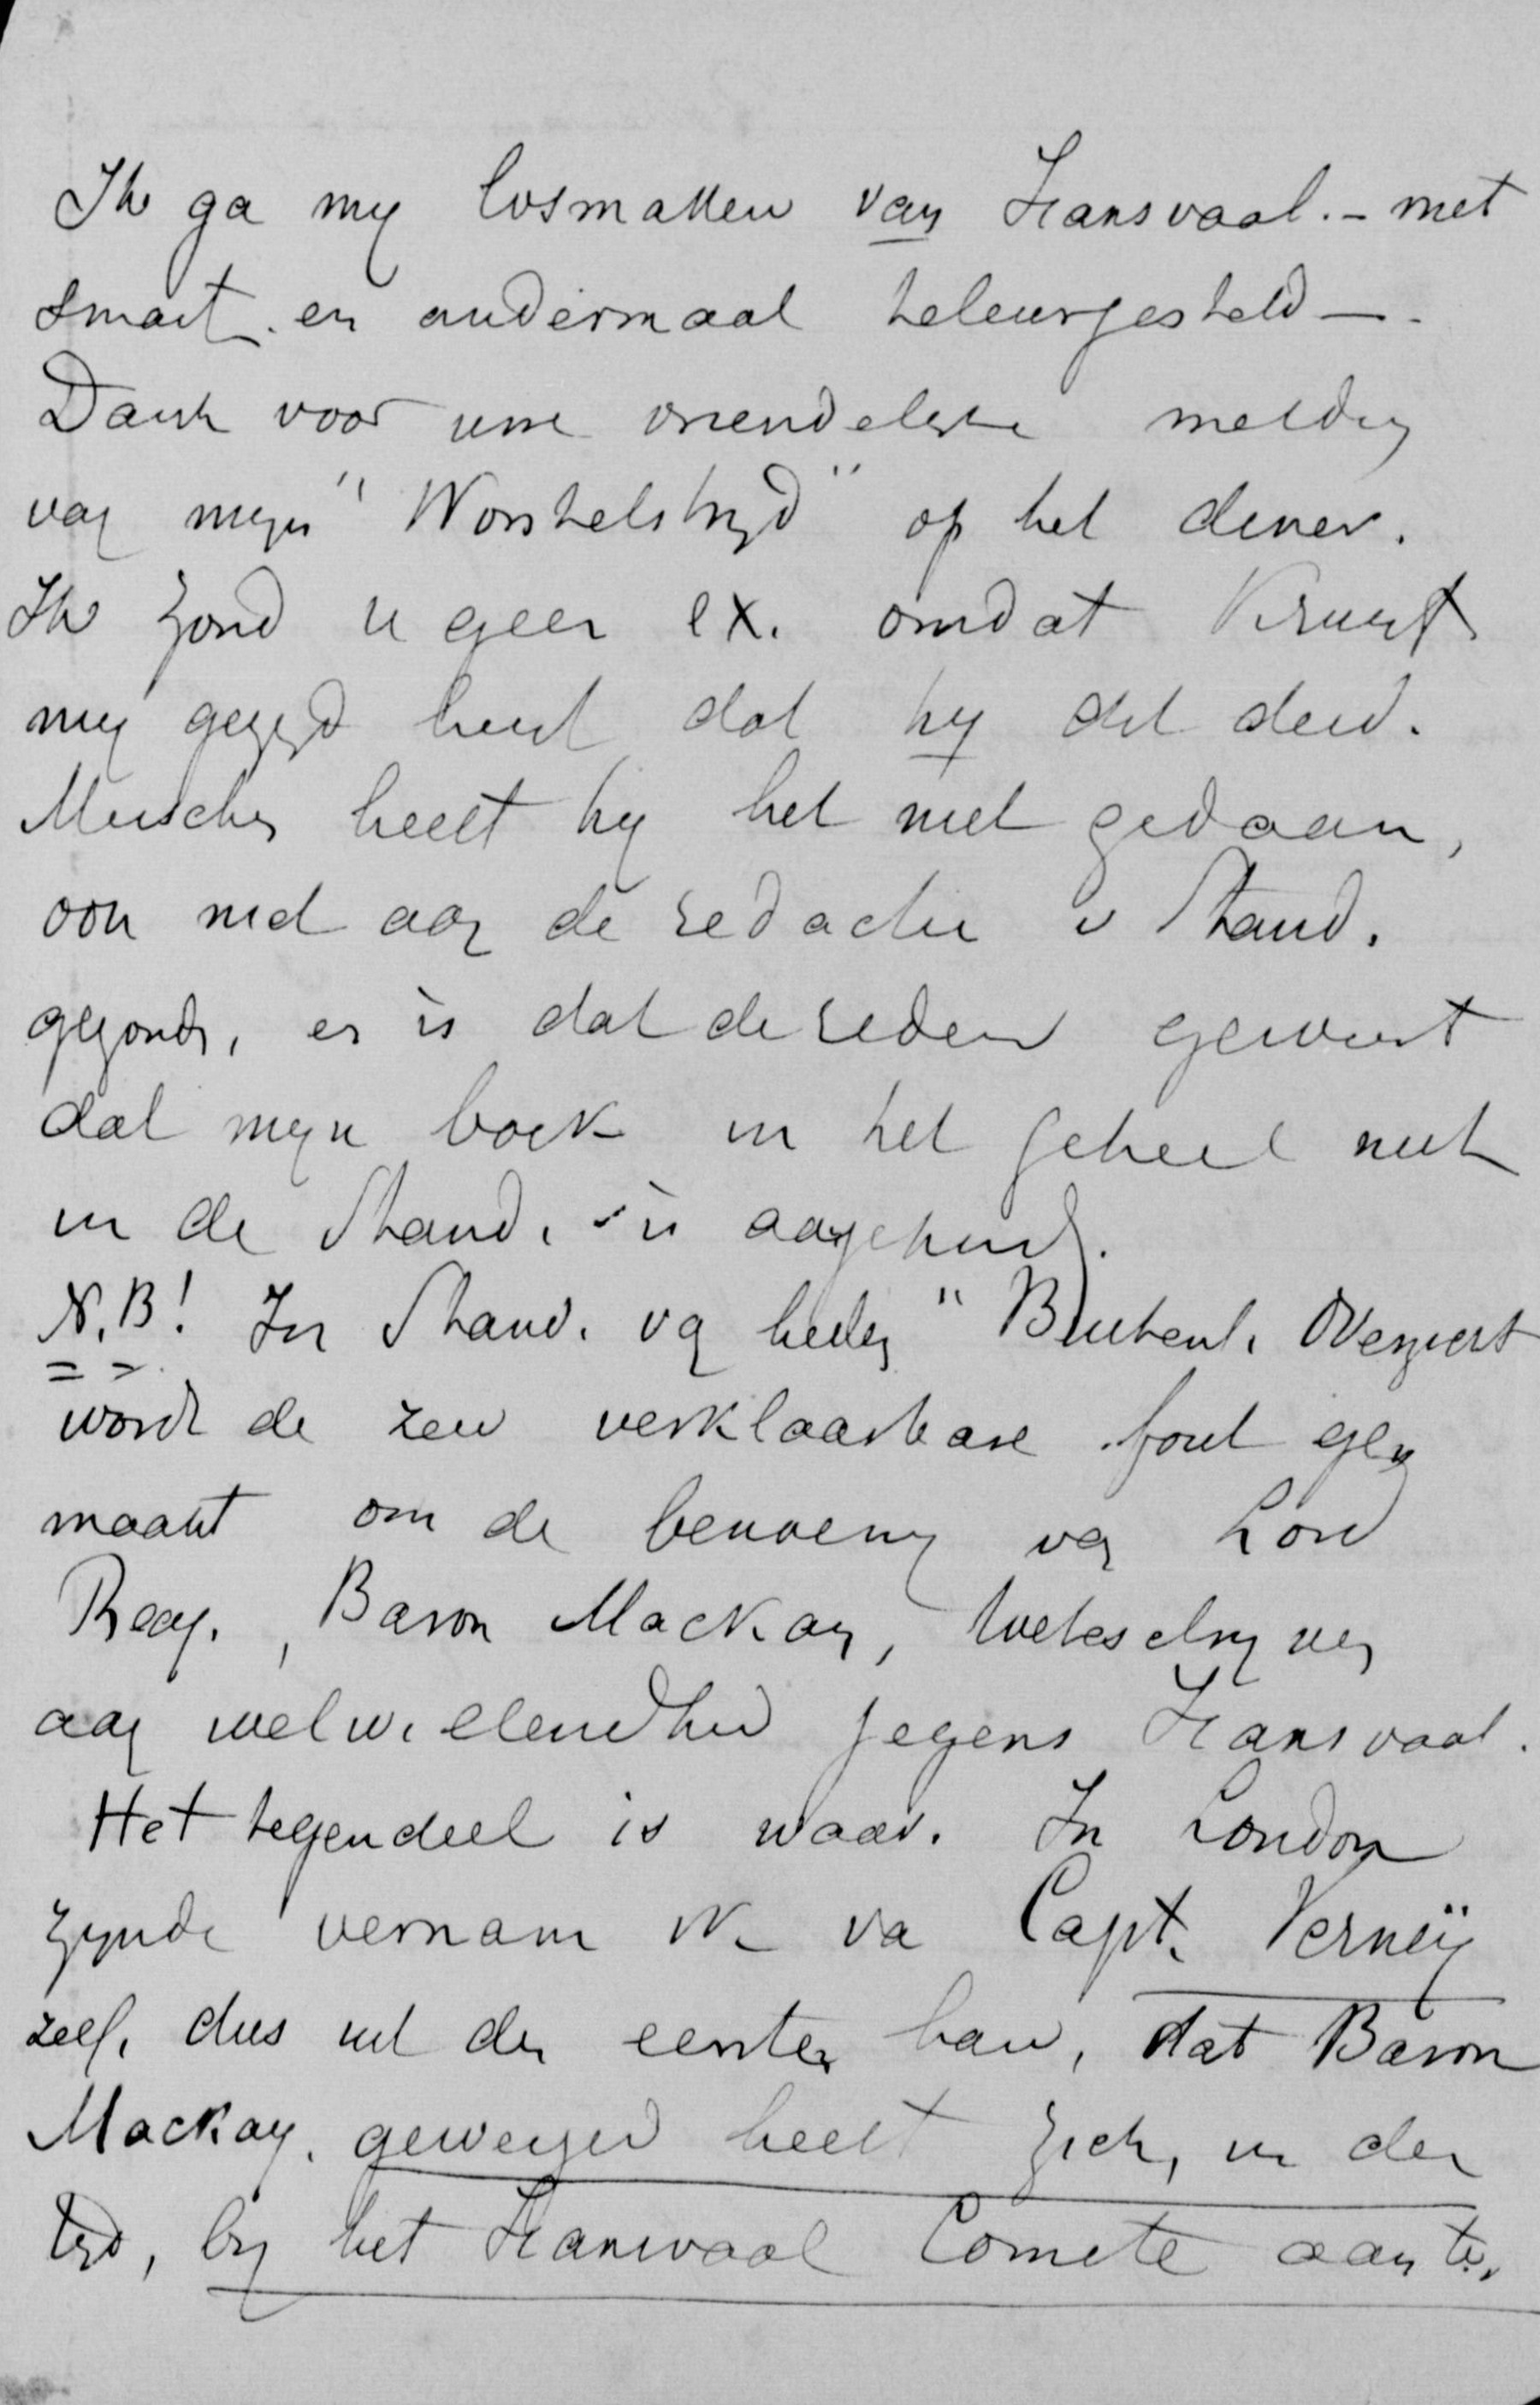 Ik ga my losmaken van Transvaal. - met
smart. en andermaal teleurgesteld -.
Dank voor uwe vriendelyke melding
van myn "Worstelstryd" op het diner.
Ik zond u geen ex. omdat Kruyt
my gezegd heeft dat hy dit deed.
Misschien heeft hy het niet gedaan,
ook niet aan de redactie v Stand.
gezonden, en is dat de reden geweest
dat myn boek in het geheel niet
in de Stand. is aangekond.
N.B! In Stand. van heden "Buitenl. Overzicht
wordt de zeer verklaarbare fout ge
maakt om de benoeming van Lord
Reay., Baron Mackay, toeteschryven
aan welwillendheid jegens Transvaal.
Het tegendeel is waar. In London
zynde vernam ik va Capt. Verney
zelf, dus uit de eerste hand, dat Baron
Mackay. geweigerd heeft zich, in der
tyd, by het Transvaal Comité aan te